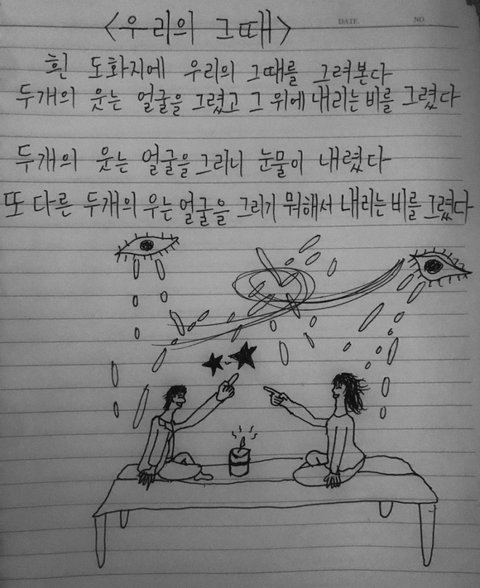 <우리의 그때>
DATE NO.
흰 도화지에 우리의 그때를 그려본다
두개의 웃는 얼굴을 그렸고 그 위에 내리는 비를 그렸다
두개의 웃는 얼굴을 그리니 눈물이 내렸다
또 다른 두개의 우는 얼굴을 그리기 뭐해서 내리는 비를 그렸다